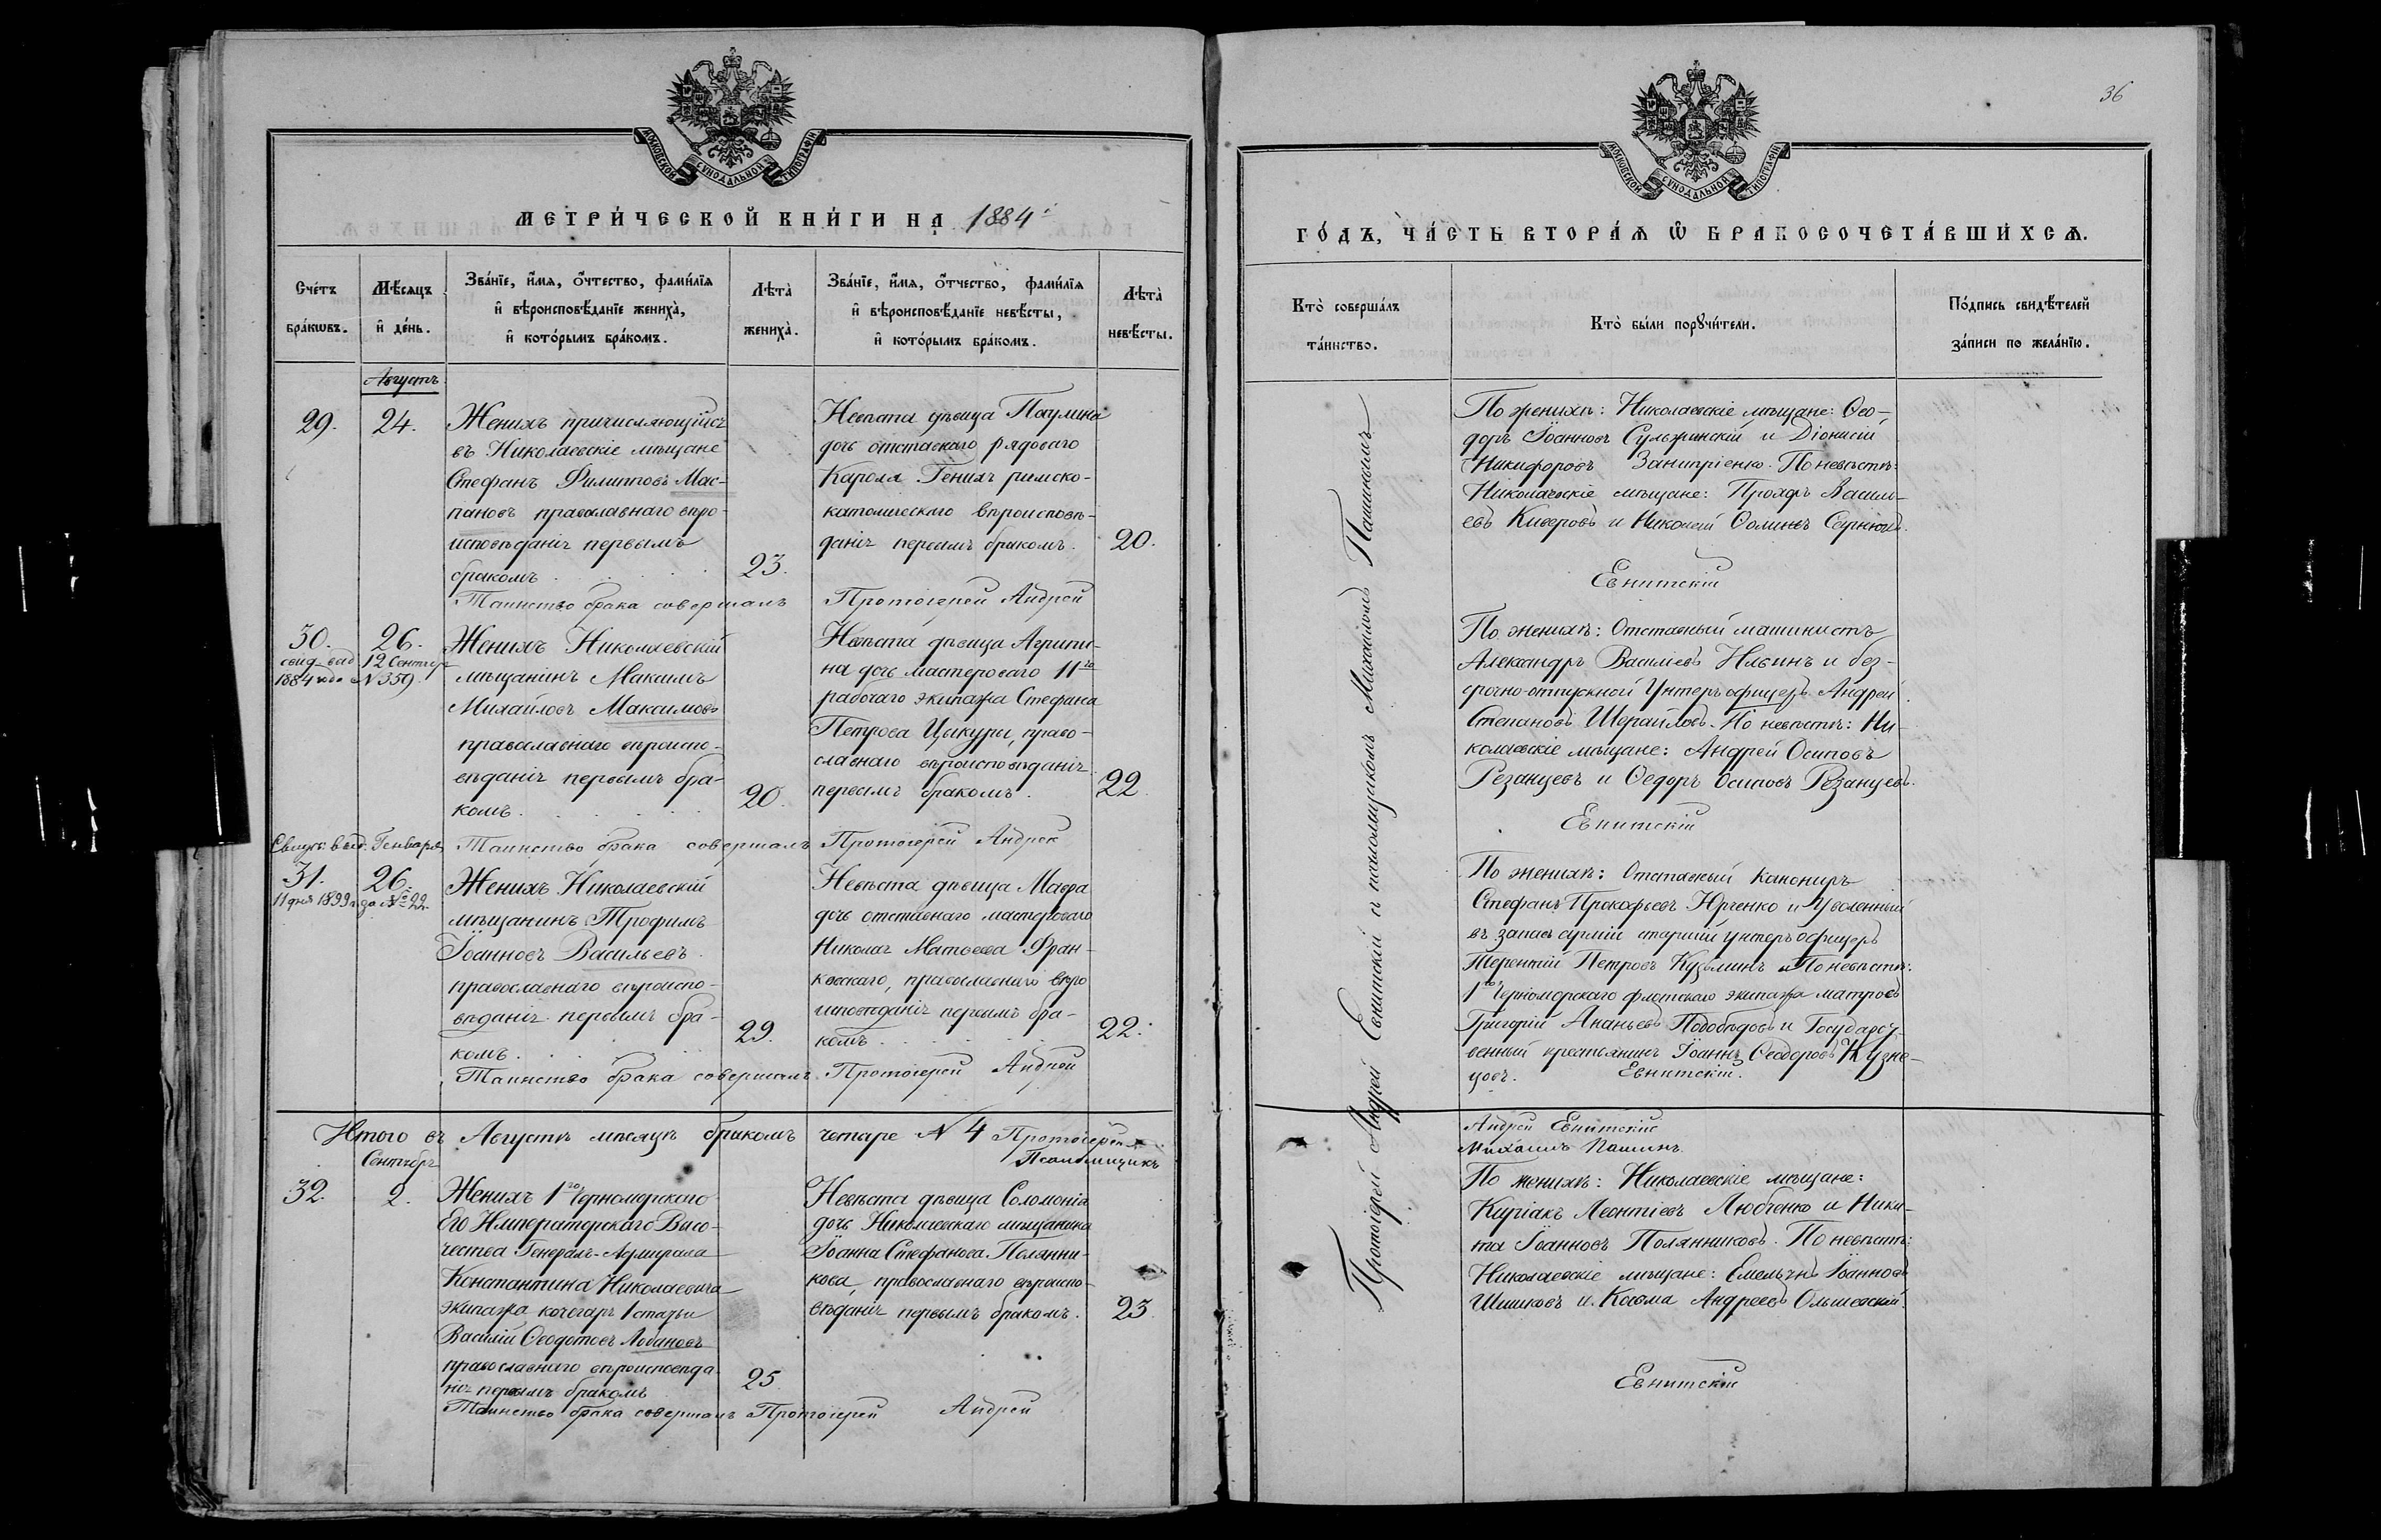 МОСКОВСКОЙ СУНОДАЛЬНОЙ ТИПОГРАФІИ
МЕТРИ́ЧЕСКОЙ КНИ́ГИ НА 1884й
Сче́тъ бра́кѡвъ.
Мѣ́сяцъ и҆ де́нь.
Зва́нїе, и҆́мя, ѻ҆́тчество, фами́лїя
и҆ вѣроисповѣ́данїе жениха̀,
и҆ кото́рымъ бра́комъ.
Лѣта̀ жениха̀.
Зва́нїе, и҆́мя, ѻ҆́тчество, фами́лїя
и҆ вѣроисповѣ́данїе невѣ́сты,
и҆ кото́рымъ бра́комъ.
Лѣта̀ невѣ́сты.
Августъ
29.
24.
Женихъ причисляющійся
въ Николаевскіе мѣщане
Стефанъ Филипповъ Мас-
пановъ православнаго вѣро-
исповѣданія первымъ
бракомъ
23.
Невѣста дѣвица Паулина
дочь отставнаго рядоваго
Кароля Гених римско-
католическаго вѣроисповѣ-
данія первымъ бракомъ.
20.
Таинство брака совершалъ Протоіерей Андрей
30.
26.
свид. выд. 12 Сентября
1884 года № 359.
Женихъ Николаевскій
мѣщанинъ Максимъ
Михайловъ Максимовъ
православнаго вѣроиспо-
вѣданія первымъ бра-
комъ.
20.
Невѣста дѣвица Агрипи-
на дочь мастероваго 11го
рабочаго экипажа Стефана
Петрова Цыкуры, право-
славнаго вѣроисповѣданія
первымъ бракомъ.
22.
Свидѣт. выд. Генваря
Таинство брака совершалъ Протоіерей Андрей
31.
26.
11 дня 1899 г. за № 22.
Женихъ Николаевскій
мѣщанинъ Трофимъ
Іоанновъ Васильевъ
православнаго вѣроиспо-
вѣданія первымъ бра-
комъ.
29.
Невѣста дѣвица Мавра
дочь отставнаго мастероваго
Николая Матвеева Фран-
ковскаго, православнаго вѣро
исповѣданія первымъ бра-
комъ.
22.
Таинство брака совершалъ Протоіерей Андрей
Итого въ Августѣ мѣсяцѣ бракомъ четыре № 4 Протоіерей
Псаломщикъ
Сентябрь
32.
2.
Женихъ 1го Черноморскаго
Его Императорскаго Высо-
чества Генералъ-Адмирала
Константина Николаевича
экипажа кочегаръ 1 статьи
Василій Ѳеодотовъ Лобановъ
православнаго вѣроисповѣда-
нія первымъ бракомъ
25.
Невѣста дѣвица Соломонія
дочь Николаевскаго мѣщанина
Іоанна Стефанова Полянни-
кова, православнаго вѣроиспо-
вѣданія первымъ бракомъ.
23.
Таинство брака совершалъ Протоіерей Андрей
36
МОСКОВСКОЙ СУНОДАЛЬНОЙ ТИПОГРАФІИ
ГО́ДЪ, ЧА́СТЬ ВТОРА́Я Ѽ БРАКОСОЧЕТА́ВШИХСЯ.
Кто̀ соверша́лъ
та́инство.
Кто̀ бы́ли порꙋчи́тели.
По́дпись свидѣ́телей
за́писи по жела́нїю.
Протоіерей Андрей Евнитскій и псаломщикомъ Михаиломъ Пашинымъ
По женихѣ: Николаевскіе мѣщане: Ѳео-
доръ Іоанновъ Сульжинскій и Діонисій
Никифоровъ Занипріенко. По невѣстѣ:
Николаевскіе мѣщане: Прохоръ Василі-
евъ Киверовъ и Николай
Евнитскій
По женихѣ: Отставный машинистъ
Александръ Василіевъ Ильинъ и без-
срочно-отпускной Унтеръ офицеръ Андрей
Степановъ Шерайловъ. По невѣстѣ: Ни-
колаевскіе мѣщане: Андрей Осиповъ
Резанцевъ и Ѳедоръ Осиповъ Резанцевъ.
Евнитскій
По женихѣ: Отставный канониръ
Стефанъ Прокофьевъ Юрченко и Уволенный
въ запасъ арміи старшій унтеръ офицеръ
Терентій Петровъ Кузьминъ и По невѣстѣ:
1го Черноморскаго флотскаго экипажа матросъ
Григорій Ананьевъ Подобѣдовъ и Государст-
венный крестьянинъ Іоаннъ Ѳеодоровъ Кузне-
цовъ. Евнитскій.
Андрей Евнитскій
Михаилъ Пашинъ
По женихѣ: Николаевскіе мѣщане:
Киріакъ Леонтіевъ Любченко и Ники-
та Іоанновъ Полянниковъ. По невѣстѣ:
Николаевскіе мѣщане: Емельянъ Іоанновъ
Шишковъ и Косьма Андреевъ Ольшевскій.
Евнитскій